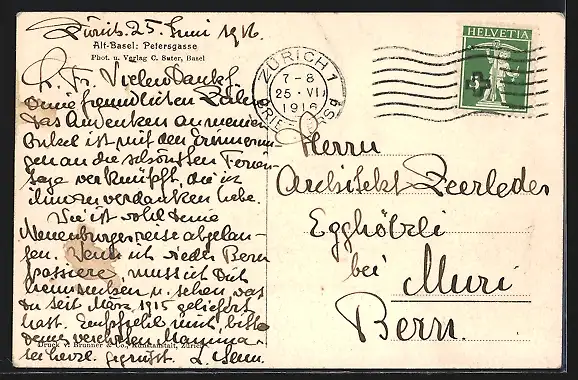 Zürich. 25. Juni 1916.
Alt-Basel: Petersgasse
Phot. u. Verlag C. Suter, Basel
L. Fr. Vielen Dank f.
Deine freundlichen Zeilen
das Andenken an meinen
Onkel ist mit den Erinnerun-
gen an die schönsten Ferien-
tage verknüpft, die ich
ihm zu verdanken habe.
Wie ist wohl Deine
Neuenburgerreise abgelau-
fen. Wenn ich wieder Bern
passiere, muss ich Dich
heimsuchen u. sehen was
Du seit März 1915 geliefert
hast. Empfehle mich, bitte
Deiner verehrten Mamma
herzl. gegrüsst.
Druck v. Brunner & Co., Kunstanstalt, Zürich
ZÜRICH 1
7-8
25.VI
1916
HELVETIA
5
Herrn
Architekt Zeerleder
Egghölzli
bei Muri
Bern.